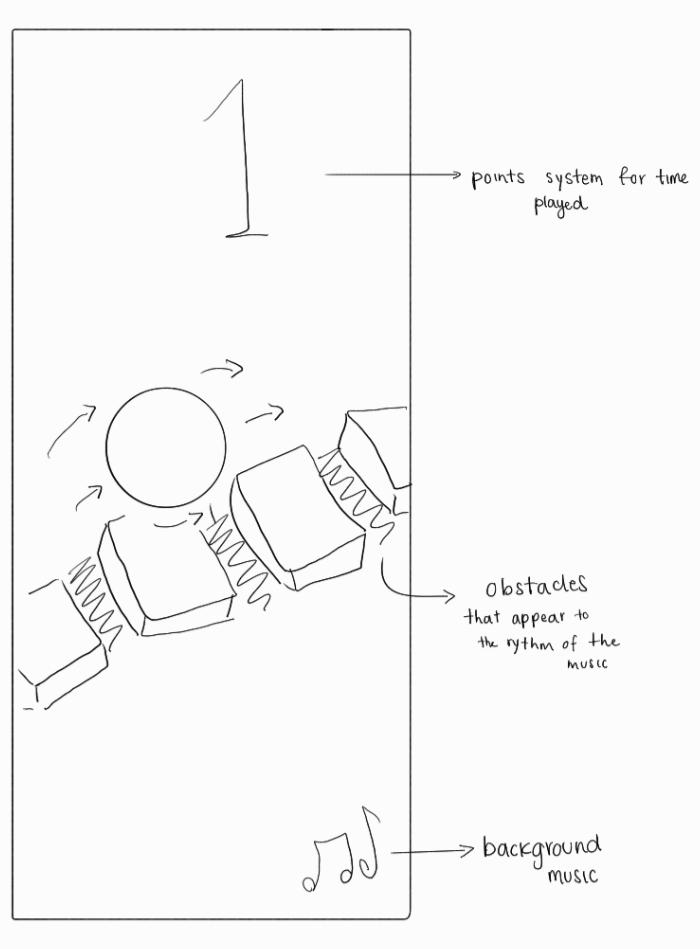 1
points system for time
played
obstacles
that appear to
the rythm of the
music
background
music